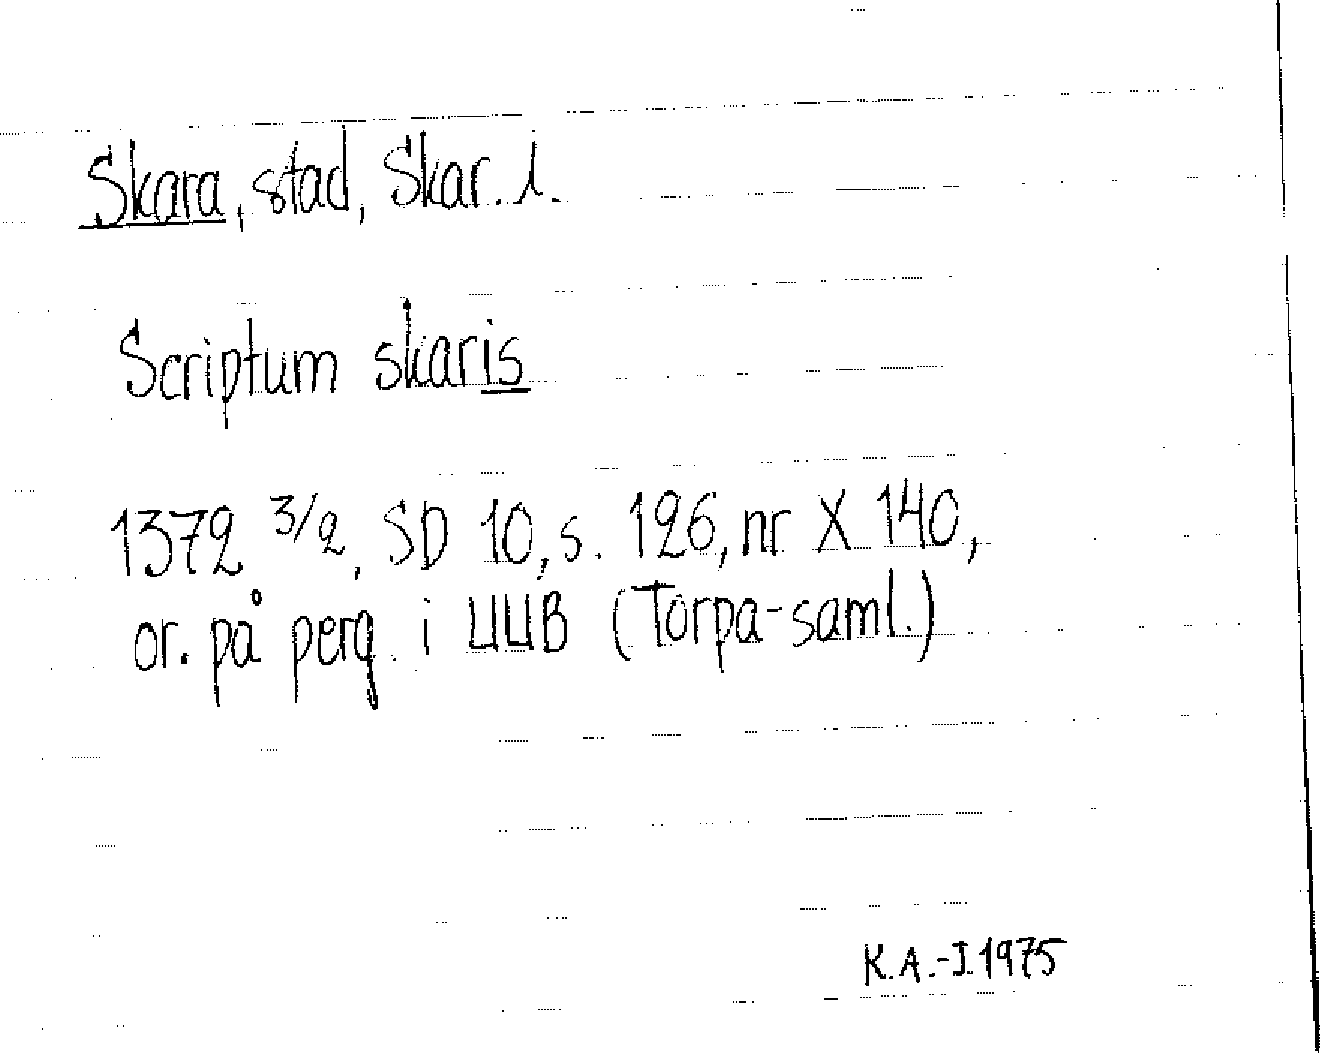 Skara, stad, Skar. l.
Scriptum skaris
1372 3/2, SD 10, s. 126, nr X 140,
or. på perg. i UUB (Torpa-saml.)
K.A.-I. 1975